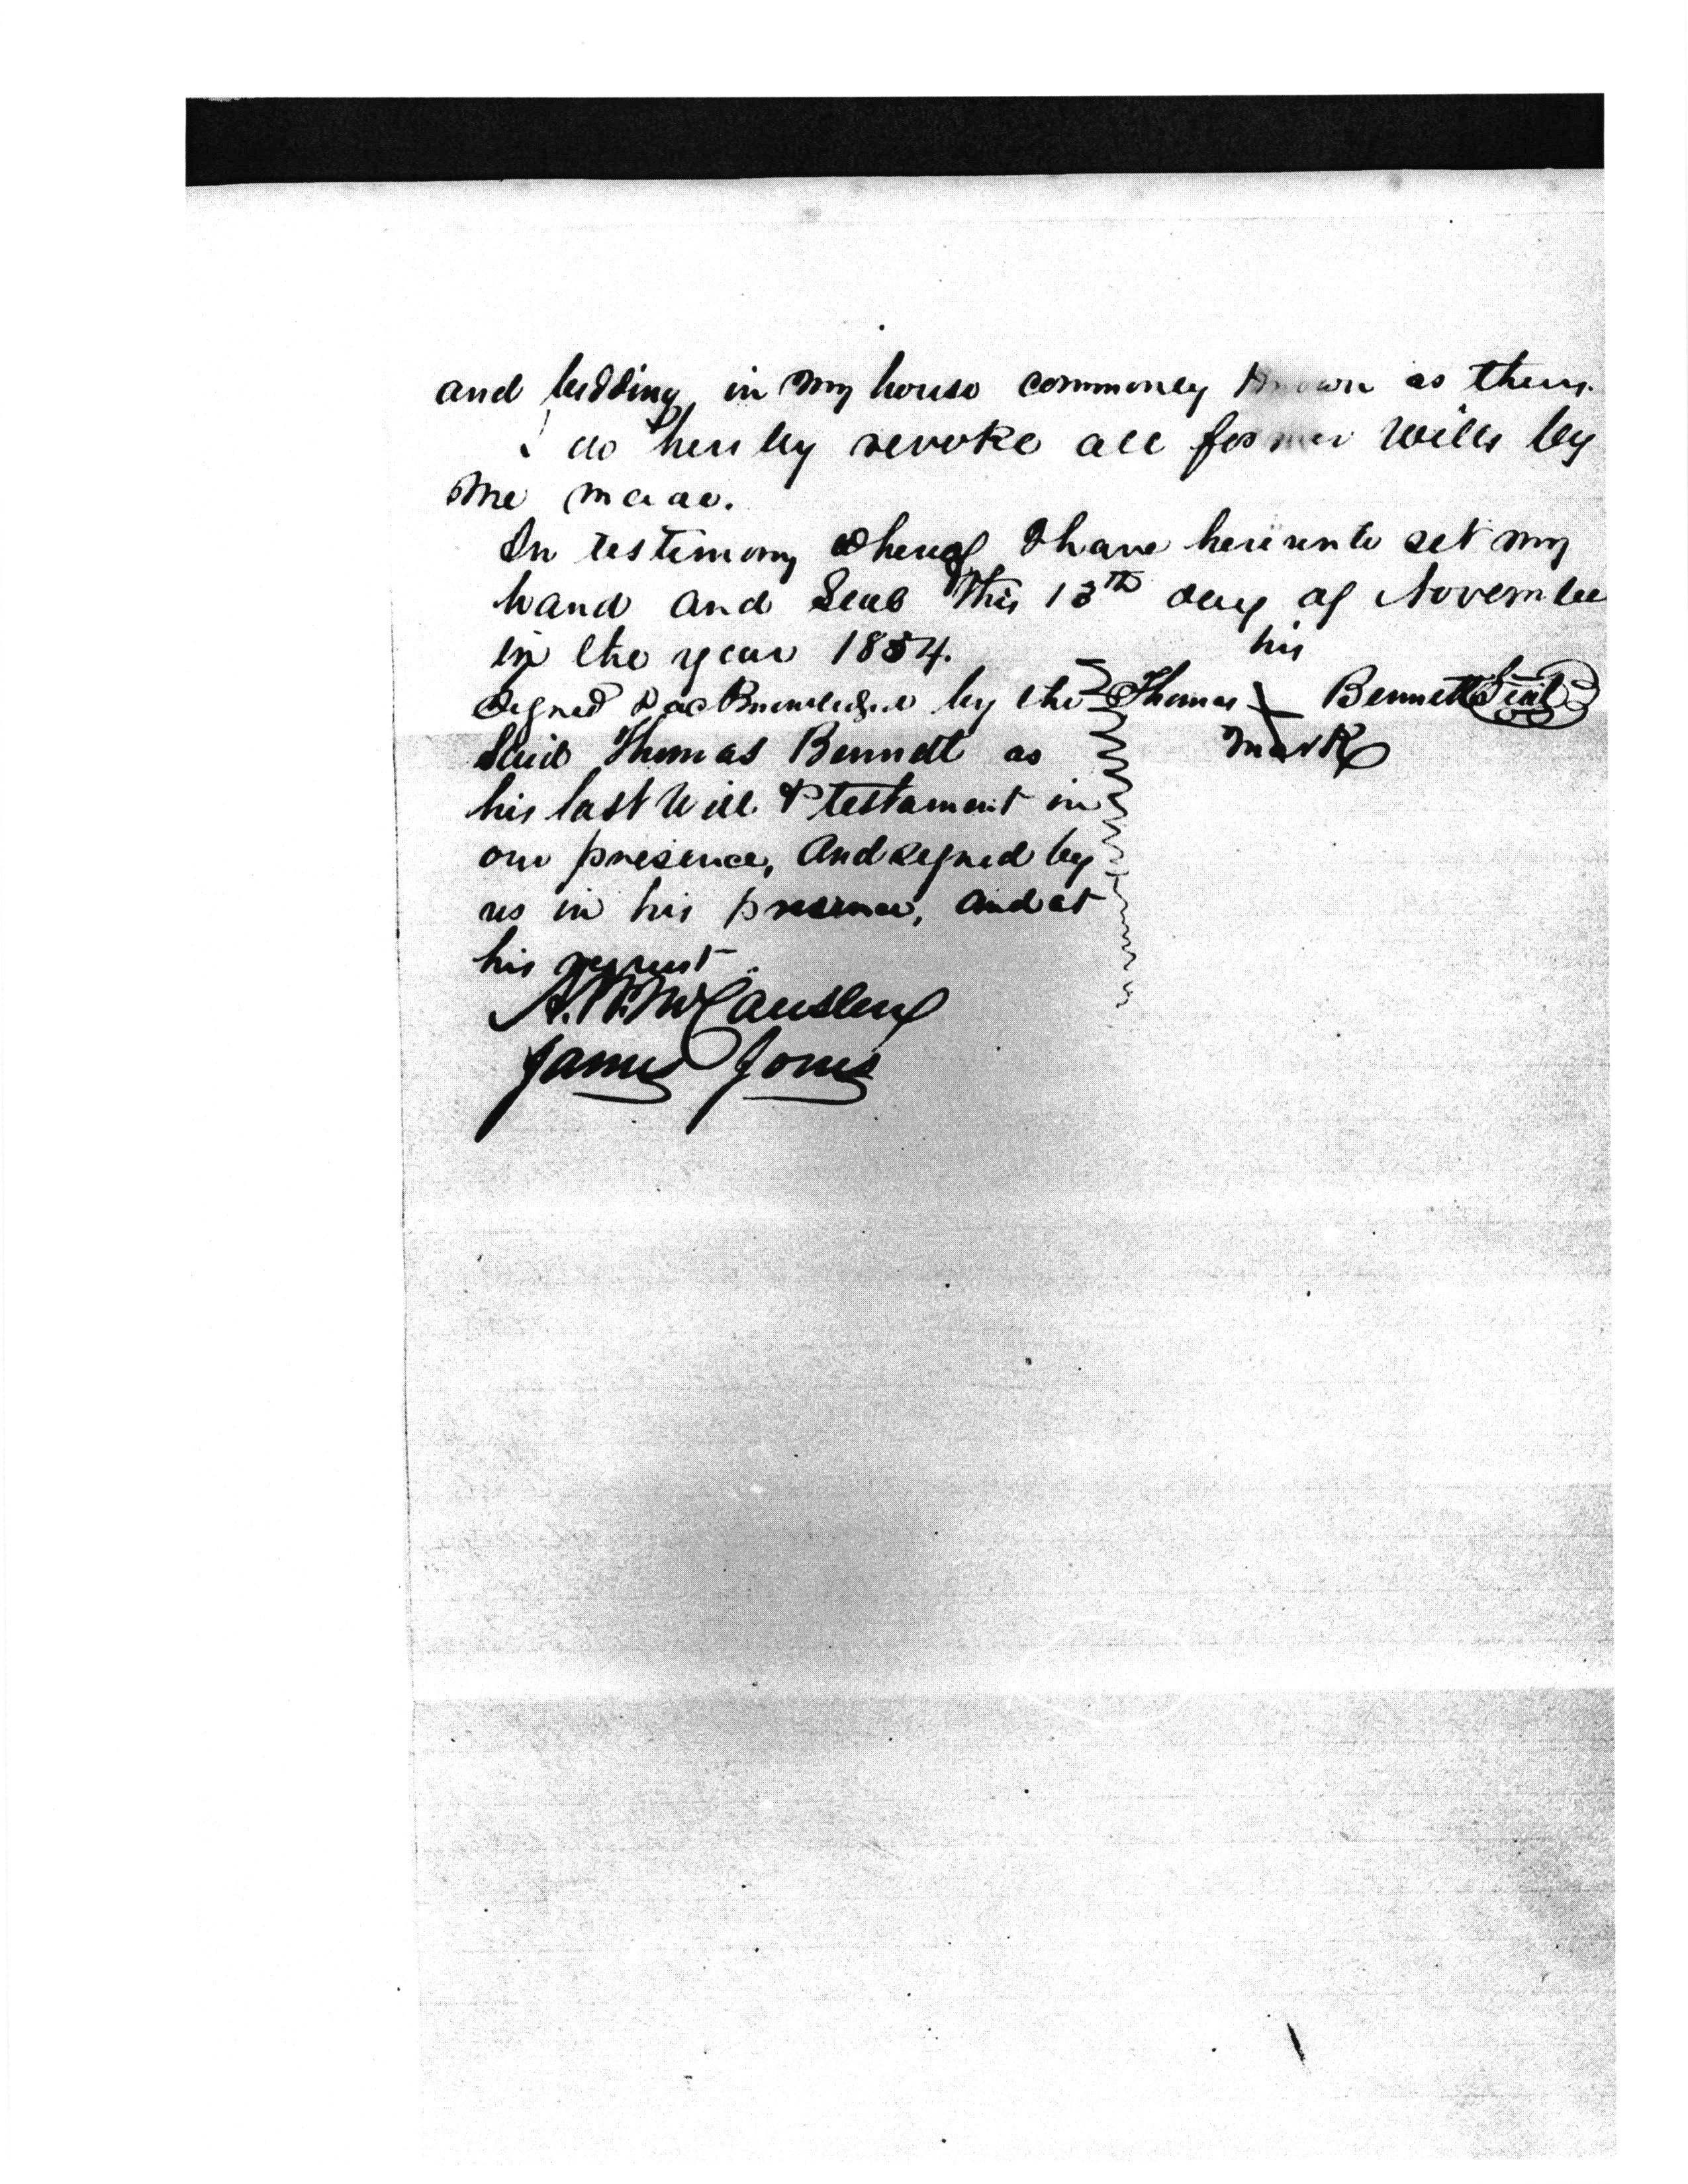 and bedding in my house commonly known as theirs.
I do hereby revoke all former Wills by
me made.
In testimony whereof I have hereunto set my
hand and Seal this 13th day of November
in the year 1854.
his
Signed & acknowledged by the Thomas X Bennett Seal
Said Thomas Bennett as
mark
his last Will & testament in
our presence, And signed by
us in his presence, and at
his request
A. W. McCauslen
James Jones